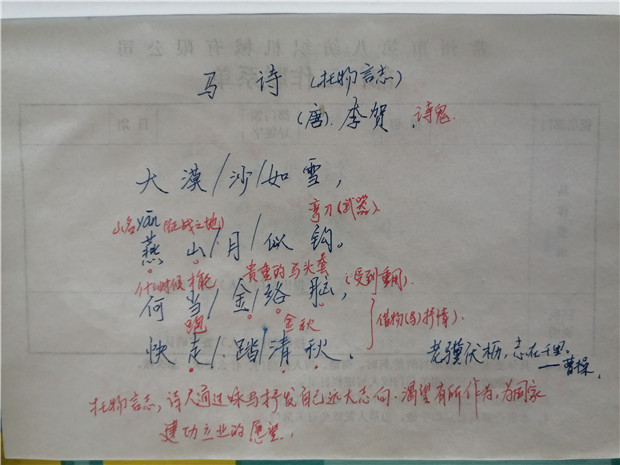 马诗(托物言志)
(唐).李贺.诗鬼.
大漠/沙/如雪，
山名yān(征战之地) 弯刀(武器)
燕山/月/似钩。
什么时候才能 贵重的马头套
何当/金/络脑，(受到重用)
跑 金秋 借物(马)抒情).
快走/踏/清秋.
老骥伏枥,志在千里.
——曹操.
托物言志,诗人通过咏马抒发自己远大志向.渴望有所作为,为国家
建功立业的愿望.